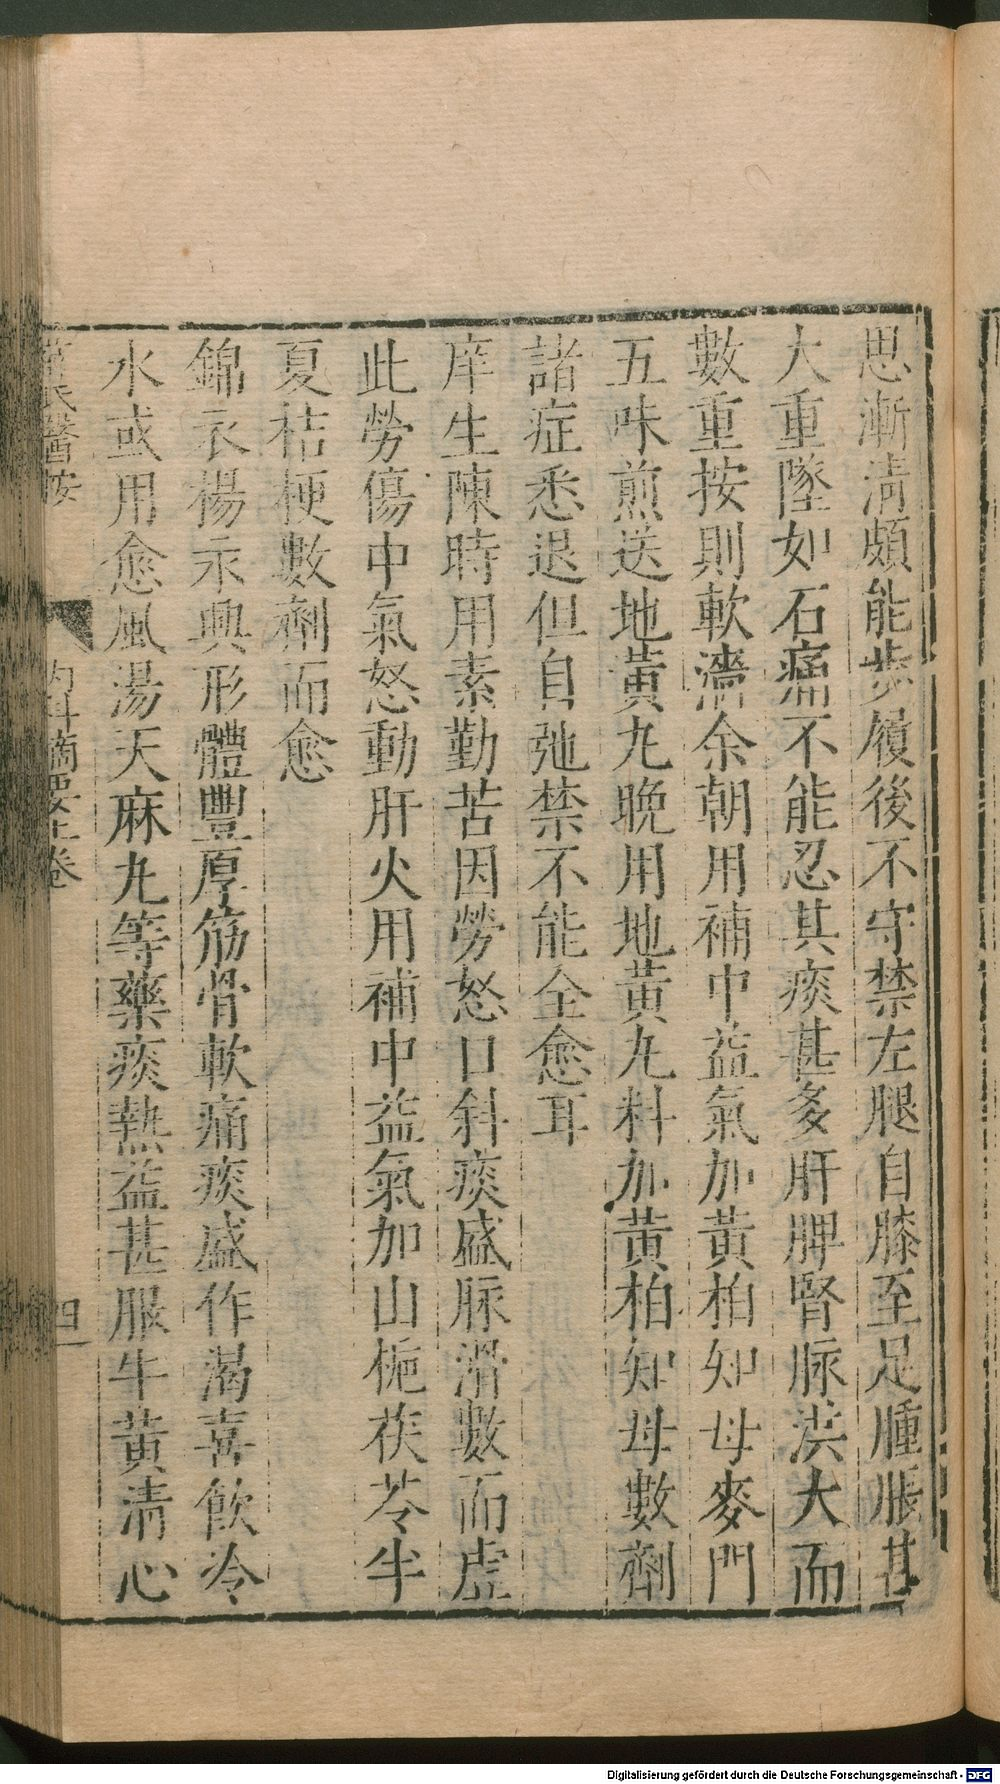 思漸淸頗能步履後不守禁左腿自膝至足腫脹甚
大重墜如石痛不能忍其痰甚多肝脾腎脉洪大而
數重按則軟濇余朝用補中益氣加黃柏知母麥門
五味煎送地黃丸晚用地黃丸料加黃柏知母數劑
諸症悉退但自弛禁不能全愈耳
庠生陳時用素勤苦因勞怒口斜痰盛脉滑數而虛
此勞傷中氣怒動肝火用補中益氣加山梔茯苓半
夏桔梗數劑而愈
錦衣楊永興形體豐厚筋骨軟痛痰盛作渴喜飮冷
水或用愈風湯天麻丸等藥痰熱益甚服牛黃淸心
氏醫按 內科摘要上卷 四
Digitalisierung gefördert durch die Deutsche Forschungsgemeinschaft - DFG